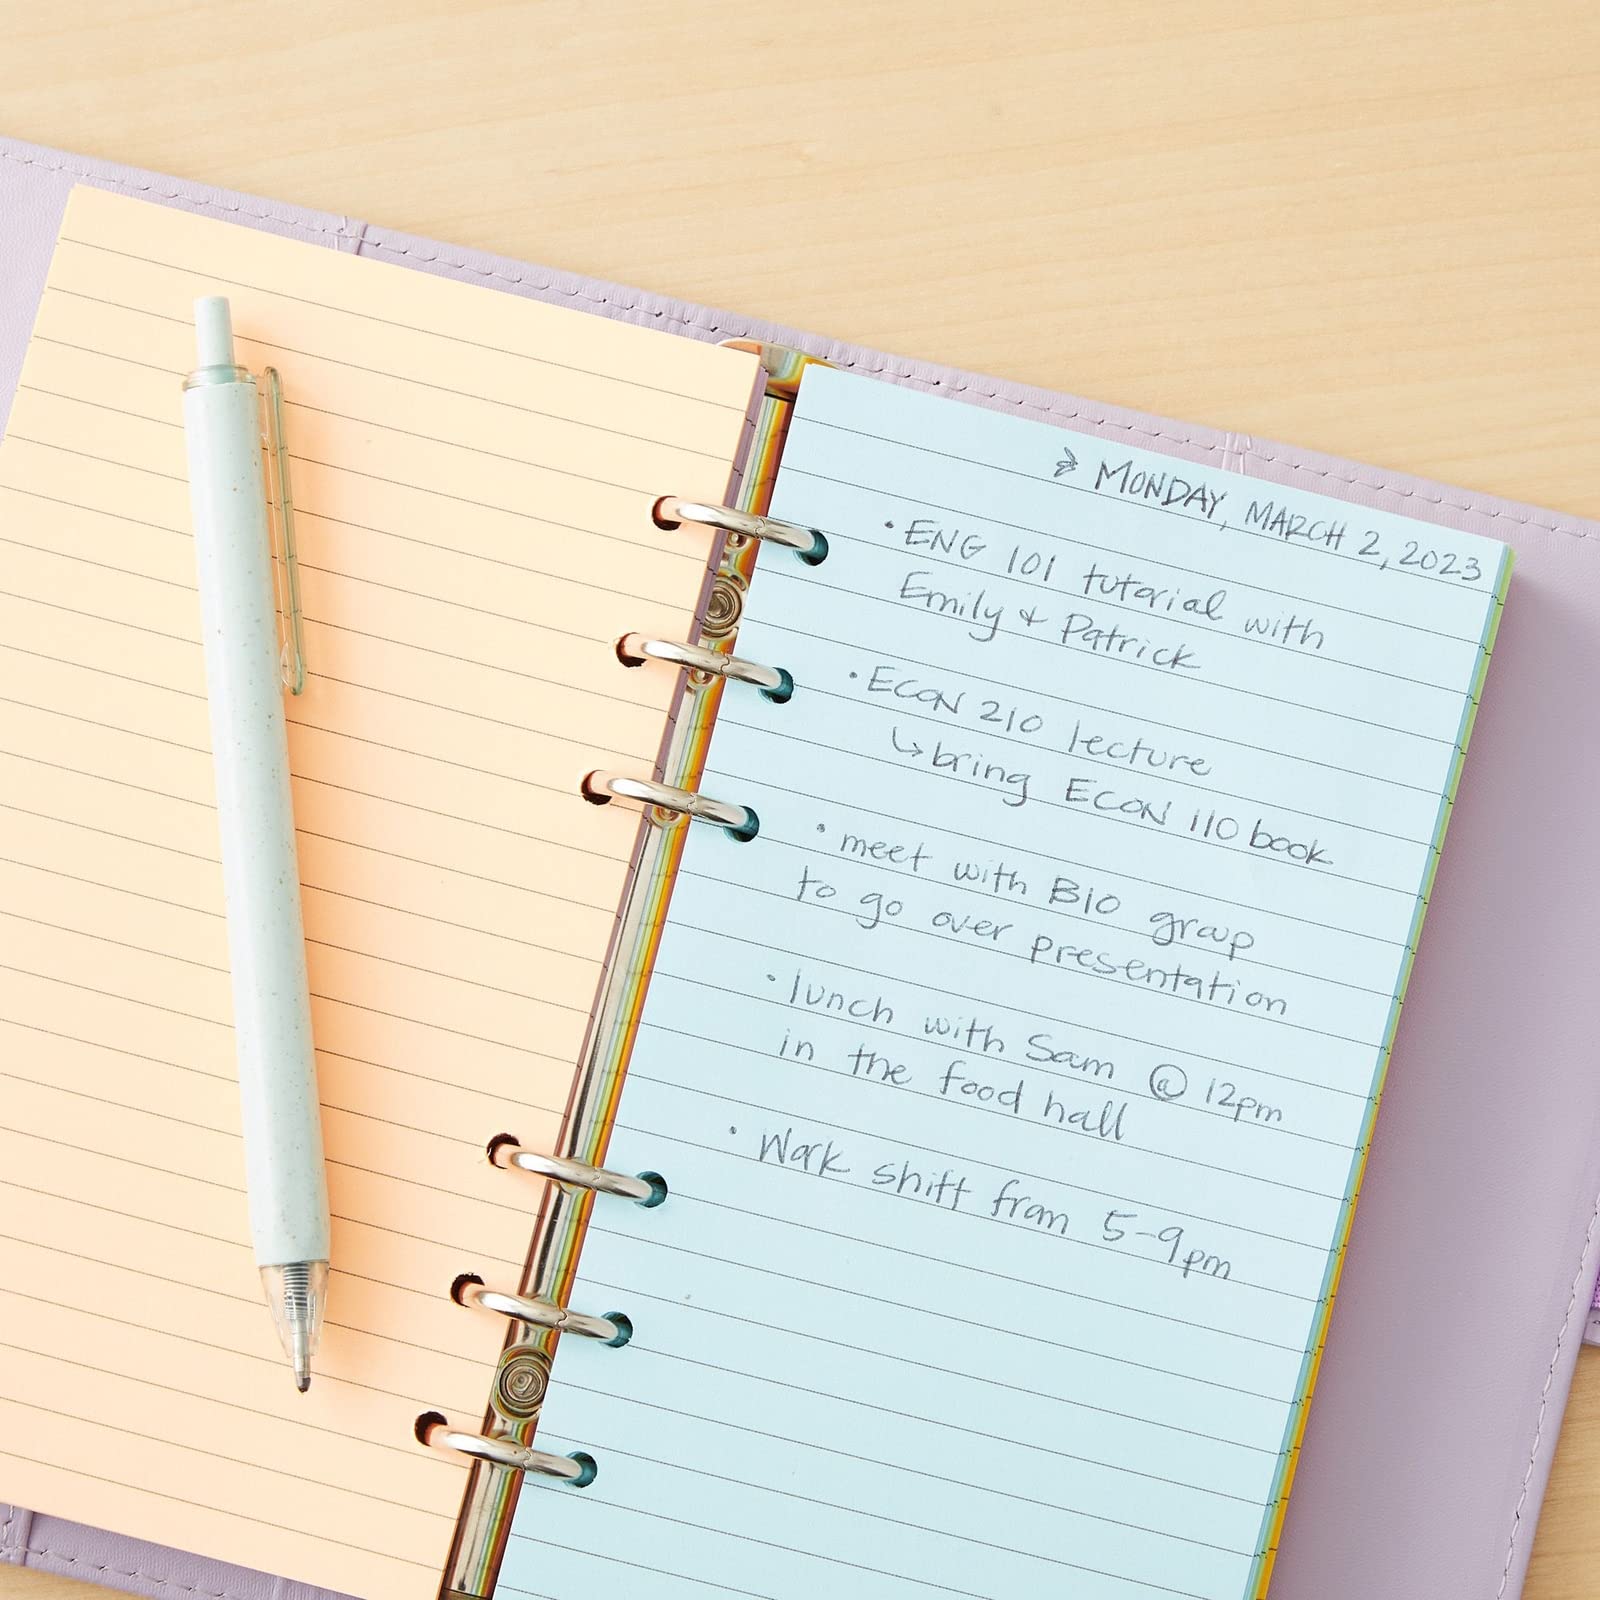 → MONDAY, MARCH 2, 2023
• ENG 101 tutorial with
Emily & Patrick
• ECON 210 lecture
↳ bring ECON 110 book
• meet with BIO group
to go over presentation
• lunch with Sam @ 12pm
in the food hall
• Work shift from 5-9pm